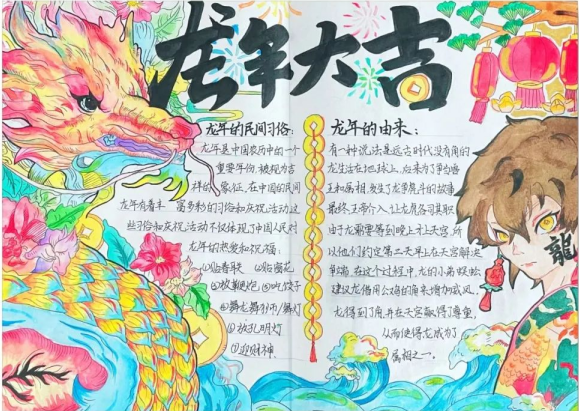 龙年大吉
龙年的民间习俗:
龙年是中国农历中的一个
重要年份,被视为吉
祥的象征,在中国的民间
龙年有着丰富多彩的习俗和庆祝活动这
些习俗和庆祝活动不仅体现了中国人民对
龙年的热爱和祝福:
①贴春联 ②贴窗花
③放鞭炮 ④吃饺子
⑤舞龙舞狮/舞灯
放孔明灯
迎财神
龙年的由来:
有一种说法是远古时代没有角的
龙生活在地球上,后来为了争当兽
王和属相,发生了龙虎争斗的故事
最终玉帝介入,让龙虎各司其职
由于龙需要等到晚上才上天宫,所
以他们约定第二天早上在天宫解决
争端,在这个过程中,龙的小弟蜈蚣
建议龙借用公鸡的角来增加威风,
龙得到了角并在天宫取得了尊重,
从而使得龙成为了
属相之一。
龍